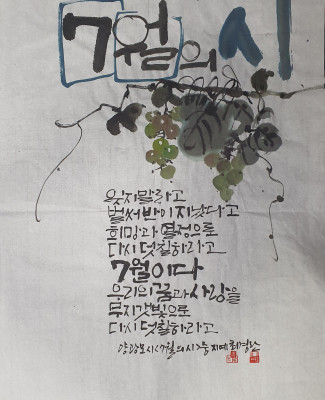 7월의 시
잊지말라고
벌써 반이 지났다고
희망과 열정으로
다시 덧칠하라고
7월이다
우리의 꿈과 사랑을
무지갯빛으로
다시 덧칠하라고
시<7월의 시>중